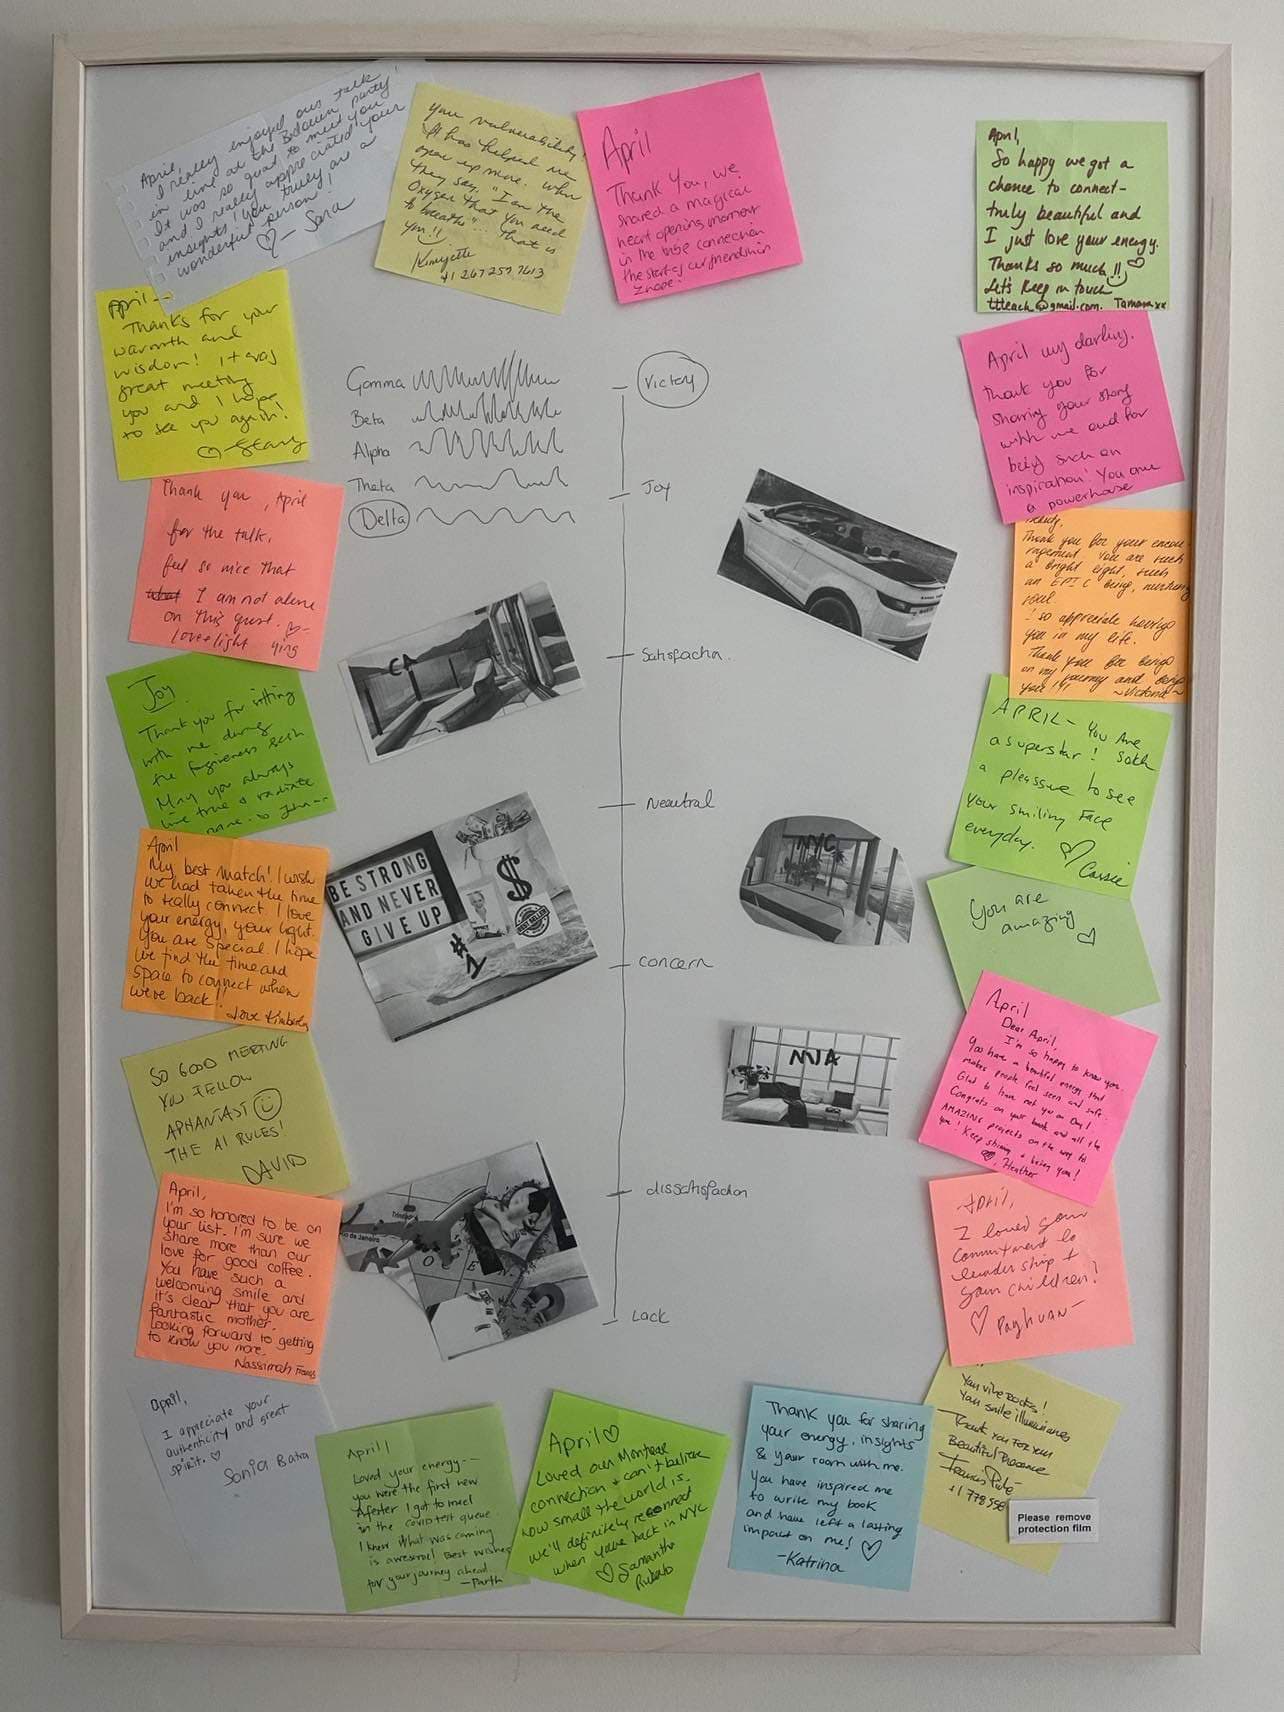 April,
I really enjoyed our talk
in line at the Bedouin party
It was so great to meet you
and I really appreciated your
insights! You truly are a
wonderful person!
♡ - Sara
your vulnerability!
It has helped me
open up more. When
they say, "I am the
Oxygen that you need
to breathe"... that is
you!!
Kimyette
+1 267 257 7613
April
Thank You, we
shared a magical
heart opening moment
in the base connection
the start of our friendship
I hope!
April,
So happy we got a
chance to connect-
truly beautiful and
I just love your energy.
Thanks so much!!
Let's keep in touch
@gmail.com. Tamara xx
April--
Thanks for your
warmth and
wisdom! It was
great meeting
you and I hope
to see you again!
♡-Stacy
April my darling.
Thank you for
sharing your story
with me and for
being such an
inspiration! You are
a powerhouse
Gamma
Beta
Alpha
Theta
Delta
Victory
Joy
Satisfaction.
Neutral
concern
dissatisfaction
Lack
Thank you, April
for the talk,
feel so nice that
what I am not alone
on this quest.
Love & light Ying
Thank you for your encou
ragement. You are such
a bright light, such
an EPIC being, nurturing
soul.
I so appreciate having
you in my life.
Thank you for being
on my journey and being
you!!!
~Victoria~
CA
Joy
Thank you for sitting
with me during
the forgiveness
May you always
live true & radiate
APRIL- You Are
a superstar! Such
a pleasure to see
your smiling face
everyday.
♡ Cassie
BE STRONG
AND NEVER
GIVE UP
$
BEST SELLER
#1
NYC
April
My best match! I wish
we had taken the time
to really connect. I love
your energy, your light.
You are special. I hope
we find the time and
space to connect when
we're back!!
Love Kimberly
You are
amazing
♡
SO GOOD MEETING
YOU FELLOW
APHANTAST
THE AI RULES!
DAVID
MIA
April
Dear April,
I'm so happy to know you.
You have a beautiful energy that
makes people feel seen and safe.
Glad to have met you on Day 1
Congrats on your book and all the
AMAZING projects on the way to
you! Keep shining & being you!
Heather
April,
I'm so honored to be on
your list. I'm sure we
share more than our
love for good coffee.
You have such a
welcoming smile and
it's clear that you are
fantastic mother.
Looking forward to getting
to know you more.
Nassimah
Rio de Janeiro
April,
I loved your
commitment to
leadership +
your children!
♡
April,
I appreciate your
authenticity and great
spirit. ♡
Sonia Batra
April!
Loved your energy--
you were the first new
I got to meet
in the covid test queue
I knew what was coming
is awesome! Best wishes
for your journey ahead
-Parth
April ♡
Loved our Montreal
connection + can't believe
how small the world is.
We'll definitely reconnect
when you're back in NYC
♡ Samantha
Thank you for sharing
your energy, insights
& your room with me.
You have inspired me
to write my book
and have left a lasting
impact on me! ♡
-Katrina
Your vibe Rocks!
Your smile illuminates
Thank you For your
Beautiful Presence
+1 778 998
Please remove
protection film